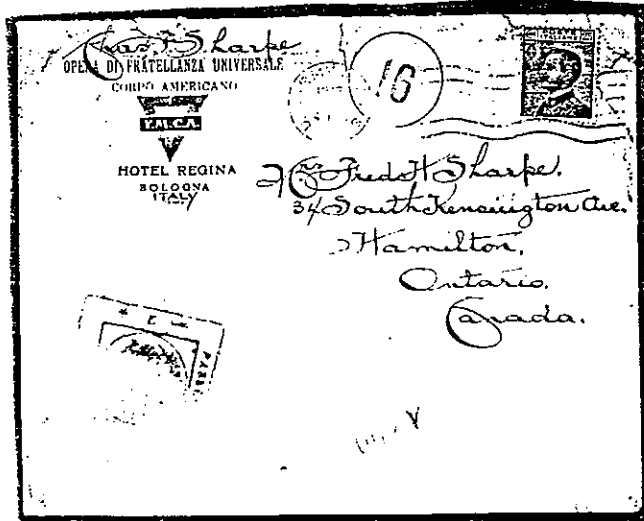 Chas. F. Sharpe
OPERA DI FRATELLANZA UNIVERSALE
CORPO AMERICANO
Y.M.C.A.
HOTEL REGINA
BOLOGNA
ITALY
16
Mrs Fred H Sharpe.
34 South Kensington Ave.
Hamilton,
Ontario.
Canada.